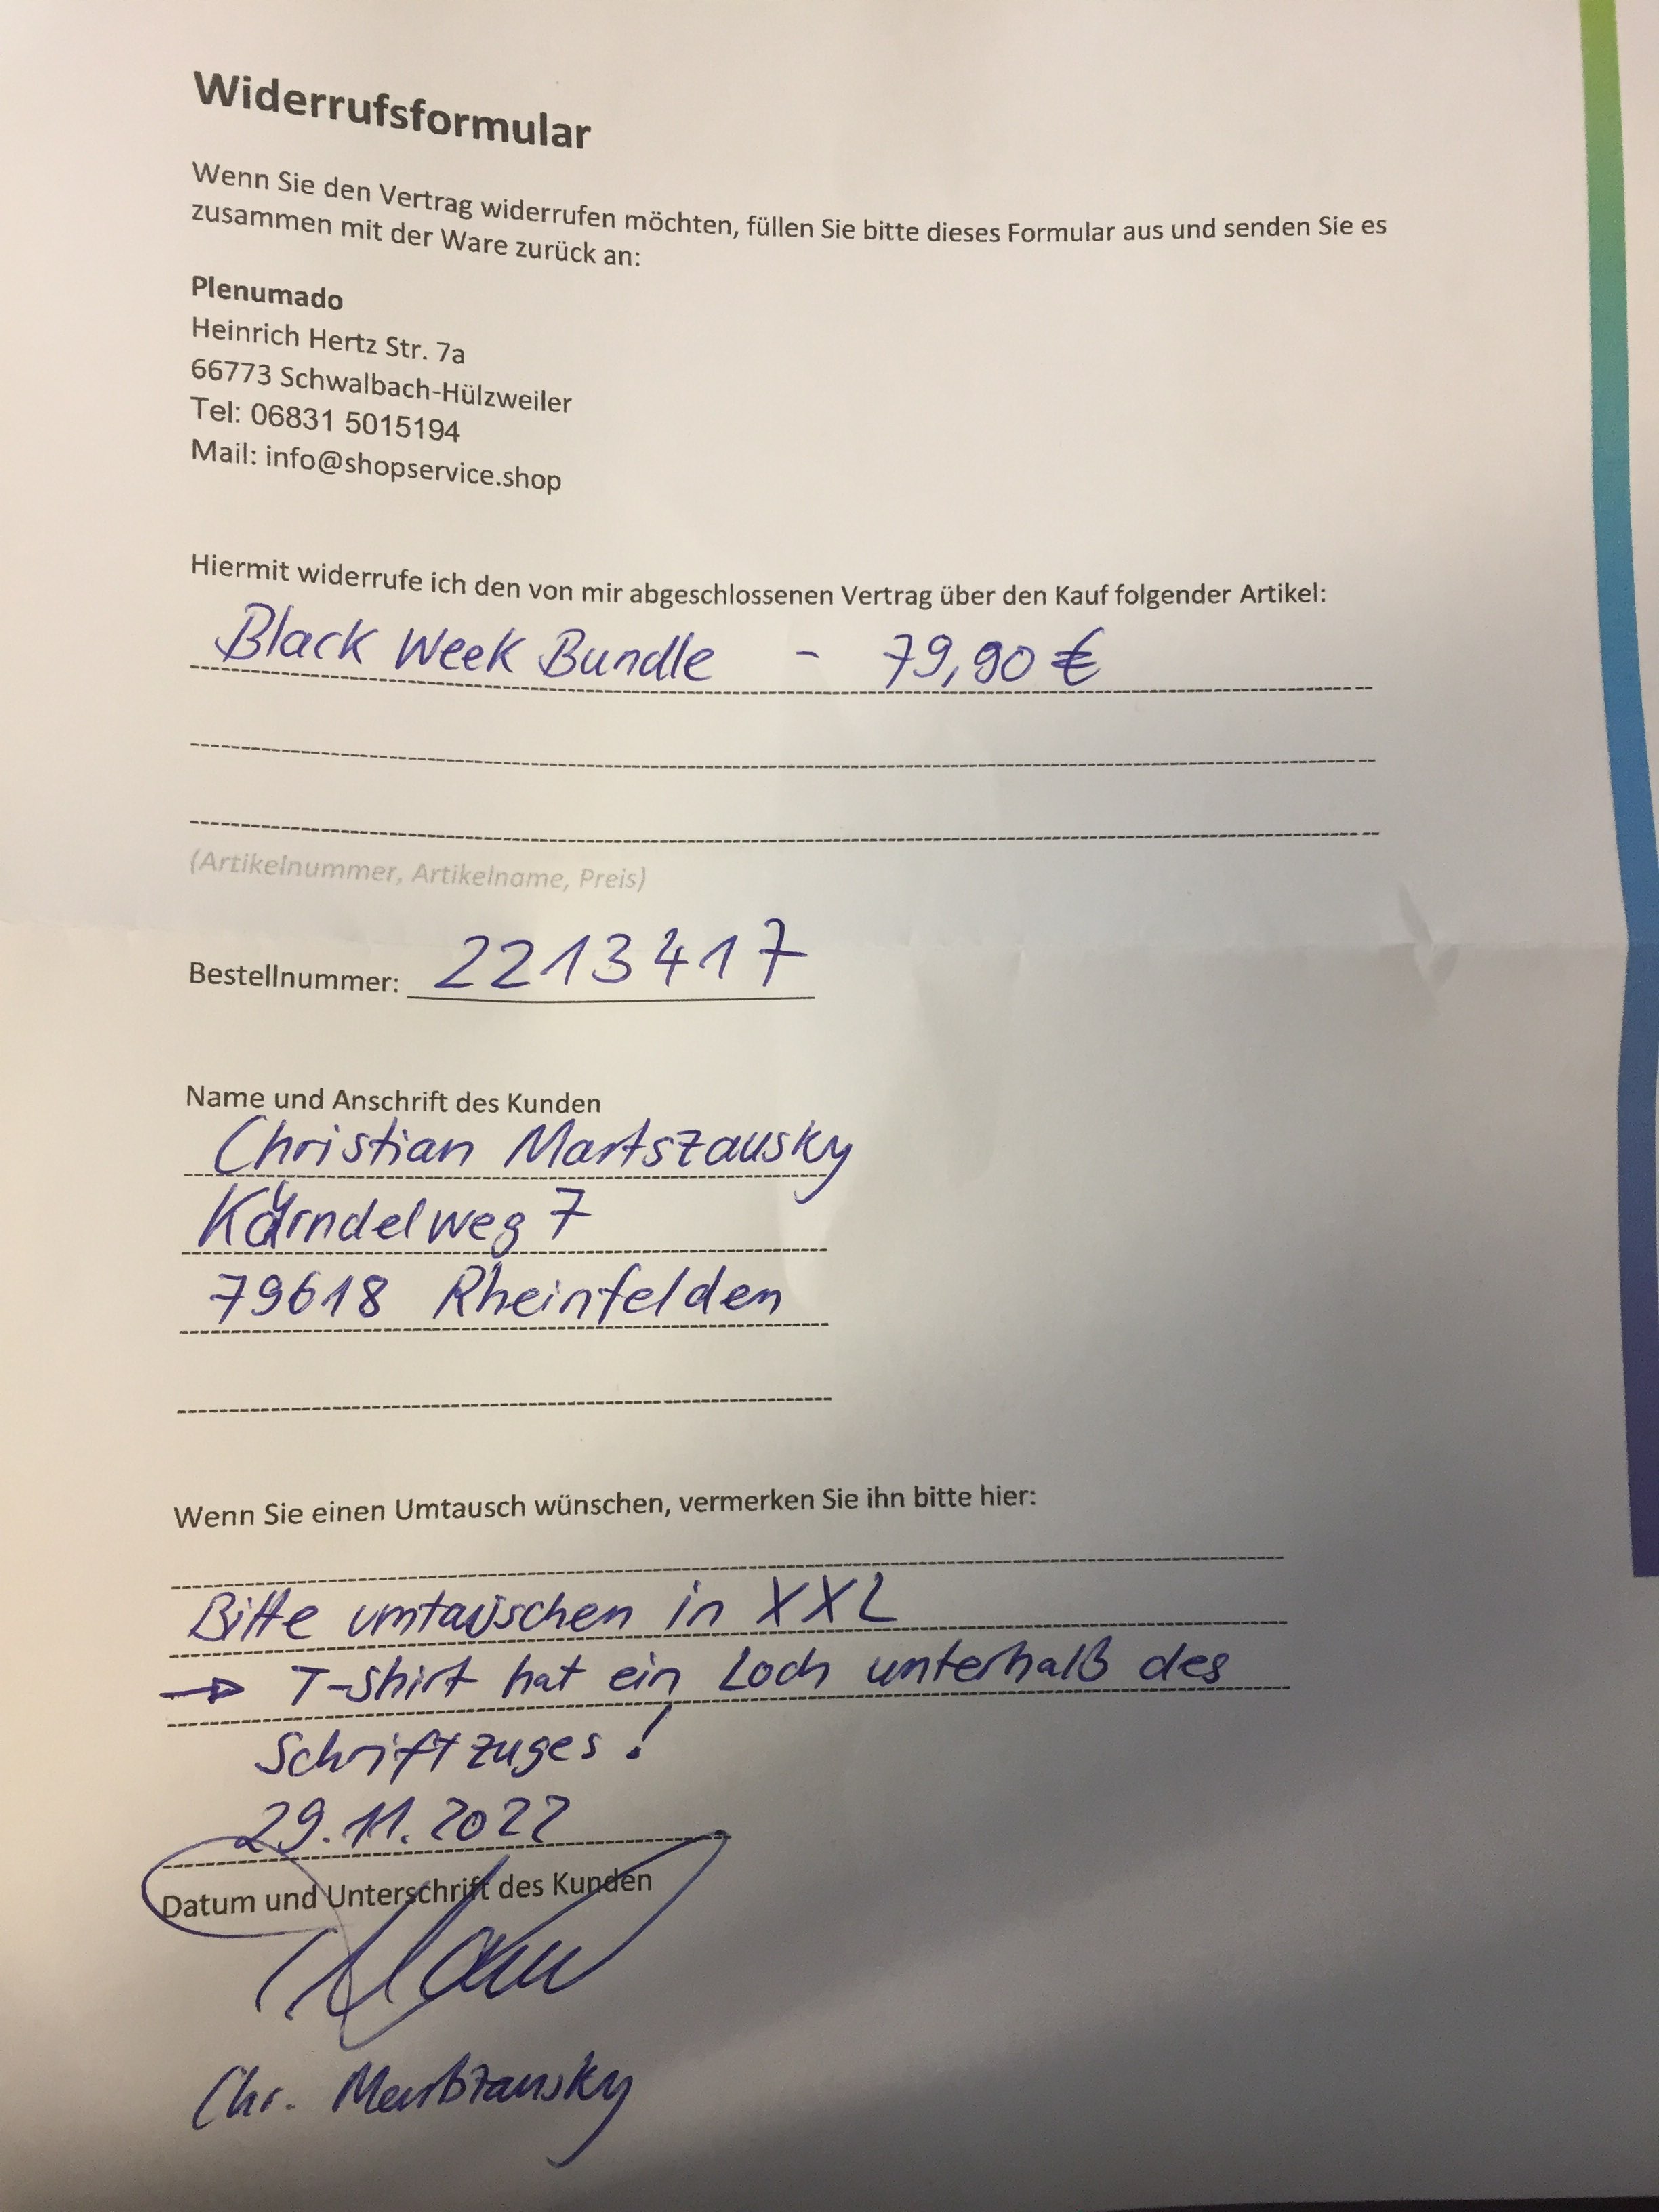 Widerrufsformular
Wenn Sie den Vertrag widerrufen möchten, füllen Sie bitte dieses Formular aus und senden Sie es
zusammen mit der Ware zurück an:
Plenumado
Heinrich Hertz Str. 7a
66773 Schwalbach-Hülzweiler
Tel: 06831 5015194
Mail: info@shopservice.shop
Hiermit widerrufe ich den von mir abgeschlossenen Vertrag über den Kauf folgender Artikel:
Black Week Bundle - 79,90 €
(Artikelnummer, Artikelname, Preis)
Bestellnummer: 2213417
Name und Anschrift des Kunden
Christian Martszausky
7
79618 Rheinfelden
Wenn Sie einen Umtausch wünschen, vermerken Sie ihn bitte hier:
Bitte umtauschen in XXL
→ T-Shirt hat ein Loch unterhalb des
Schriftzuges!
29.11.2022
Datum und Unterschrift des Kunden
Chr.